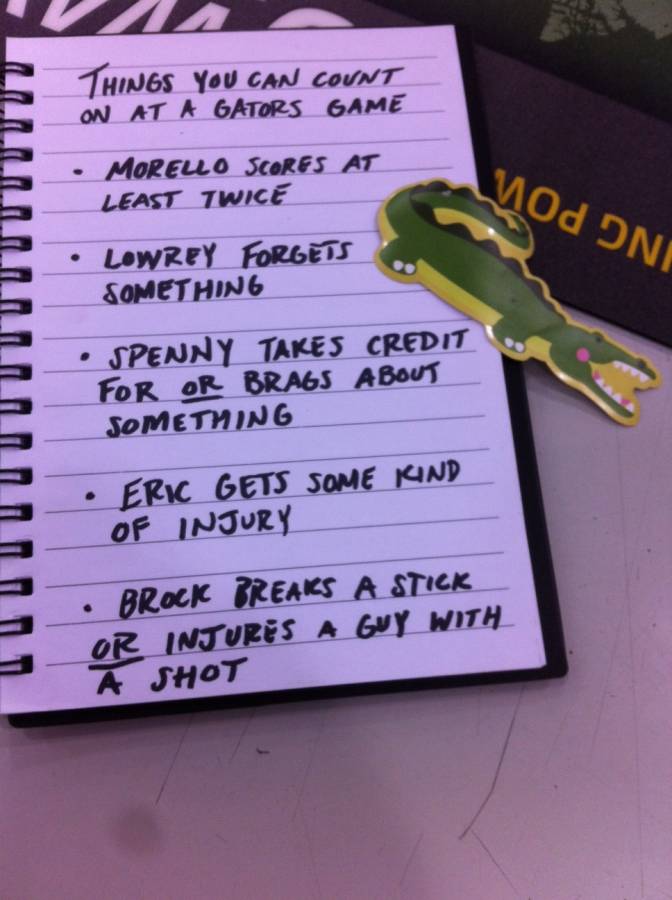 THINGS YOU CAN COUNT
ON AT A GATORS GAME
• MORELLO SCORES AT
LEAST TWICE
• LOWREY FORGETS
SOMETHING
• SPENNY TAKES CREDIT
FOR OR BRAGS ABOUT
SOMETHING
• ERIC GETS SOME KIND
OF INJURY
• BROCK BREAKS A STICK
OR INJURES A GUY WITH
A SHOT